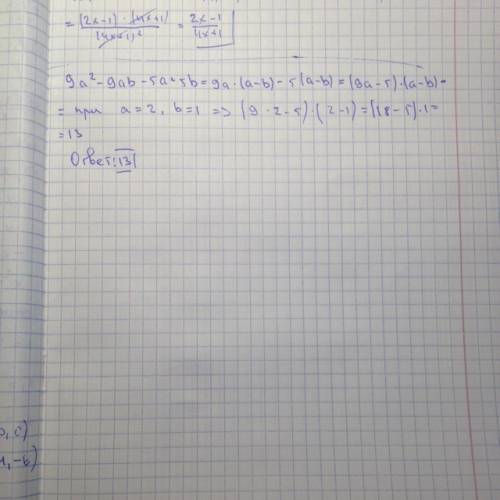 = (2x-1)·(4x+1) / (4x+1)² = 2x-1 / 4x+1
9a²-9ab-5a+5b=9a·(a-b)-5(a-b)=(9a-5)·(a-b)=
= при a=2, b=1 => (9·2-5)·(2-1)=(18-5)·1=
=13
Ответ: 13
, c)
, -b)